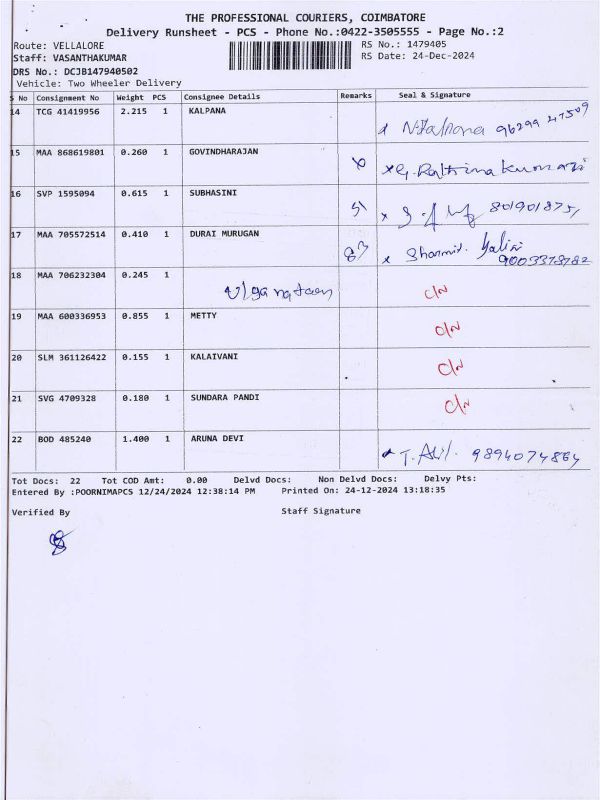 THE PROFESSIONAL COURIERS, COIMBATORE
Delivery Runsheet - PCS - Phone No.:0422-3505555 - Page No.:2
Route: VELLALORE RS No.: 1479405
Staff: VASANTHAKUMAR RS Date: 24-Dec-2024
DRS No.: DCJB147940502
Vehicle: Two Wheeler Delivery
S No Consignment No Weight PCS Consignee Details Remarks Seal & Signature
14 TCG 41419956 2.215 1 KALPANA
15 MAA 868619801 0.260 1 GOVINDHARAJAN
16 SVP 1595094 0.615 1 SUBHASINI
17 MAA 705572514 0.410 1 DURAI MURUGAN 9003378782
18 MAA 706232304 0.245 1 C/N
19 MAA 600336953 0.855 1 METTY C/N
20 SLM 361126422 0.155 1 KALAIVANI C/N
21 SVG 4709328 0.180 1 SUNDARA PANDI C/N
22 BOD 485240 1.400 1 ARUNA DEVI 9894074864
Tot Docs: 22 Tot COD Amt: 0.00 Delvd Docs: Non Delvd Docs: Delvy Pts:
Entered By :POORNIMAPCS 12/24/2024 12:38:14 PM Printed On: 24-12-2024 13:18:35
Verified By Staff Signature